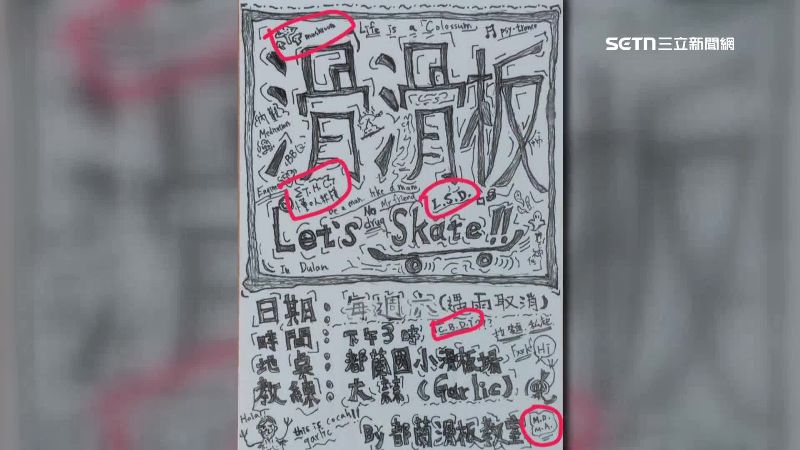 SETN三立新聞網
mushroom
Life is a Colossum
psy-trance
滑滑板
Meditation
T.H.C
be a man like a man
L.S.D.
No drug
My friend
Let's Skate!!
In Dulan
日期:每週六(遇雨取消)
時間:下午3時
C.B.D
地點:都蘭國小滑板場
Hi
教練:大蒜(Garlic)
Hola!!
this is cocah!!
garlic
By 都蘭滑板教室
M.D.
M.A.